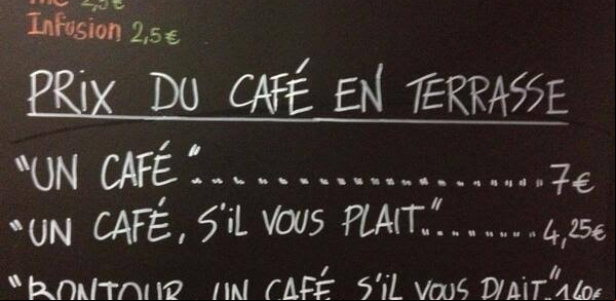 2,5€
Infusion 2,5€
PRiX DU CAFÉ EN TERRASSE
"UN CAFÉ"..............................7€
"UN CAFÉ, S'iL VOUS PLAIT."..........4,25€
"BONJOUR, UN CAFÉ, S'iL VOUS PLAiT."1,40€